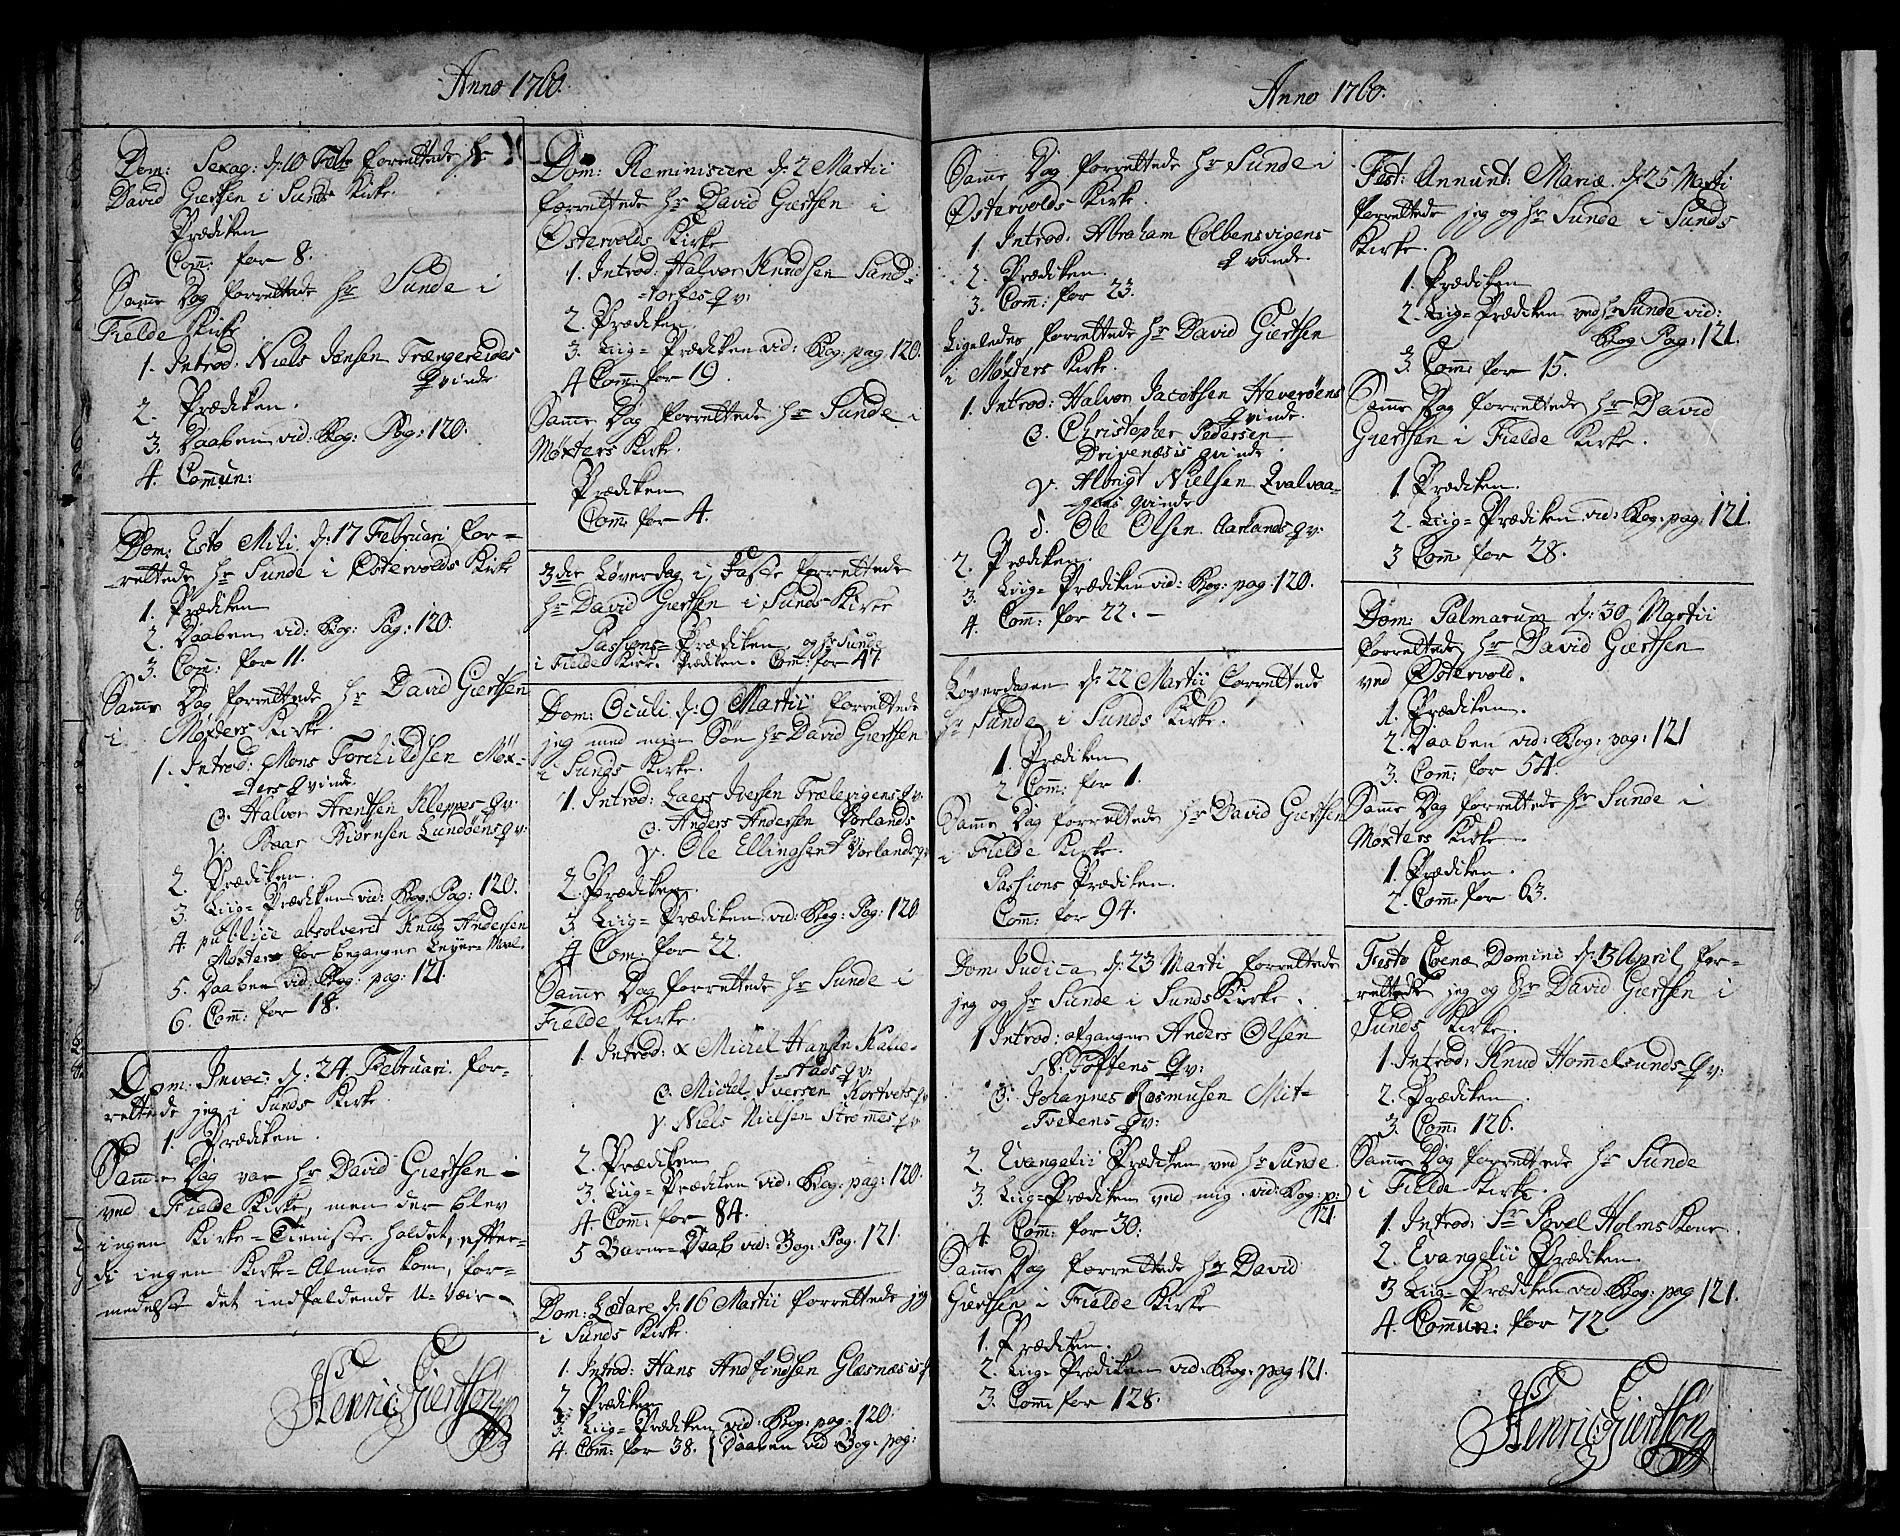 Anno 1760.
Dom: Sexag: d: 10 Febr forrettede Hr
David Giertsen i Sunds Kirke.
Prædiken
Com: for 8.
Samme Dag forrettede Hr Sunde i
Fielde Kirke
1. Introd: Niels Jansen Trængereides
Qvinde
2. Prædiken.
3. Daaben vid: Bog: Pag: 120.
4. Comun:
Dom: Esto Mihi d: 17 Februari for-
rettede Hr Sunde i Østervolds Kirke
1. Prædiken
2. Daaben vid: Bog: Pag: 120.
3. Com: for 11.
Samme Dag forrettede Hr David Giertsen
i Møxters Kirke.
1. Introd: Mons Torchildsen Møx-
ters Qvinde.
β. Halvor Arentsen Kleppes qv:
γ. Baar Biørnsen Lundøens qv:
2. Prædiken.
3. Liig-Prædiken vid: Bog: Pag: 120.
4. publice absolveret Knud Andersen
Møxter for begangne Leyer-Maal
5. Daaben vid: Bog: pag: 121.
6. Com: for 18.
Dom: Invoc: d: 24. Februari. for-
rettede jeg i Sunds Kirke.
1. Prædiken.
Samme Dag var Hr David Giertsen
ved Fielde Kirke, men der blev
ingen Kirke-Tieniste holdet, efter-
di ingen Kirke-Almue kom, for-
medelst det indfaldende U-Veir.
Henric Giertsøn
Dom: Reminiscere d: 2 Martii
forrettede Hr David Giertsen i
Østervolds Kirke
1. Introd: Halvor Knudsen Sand-
torfes qv:
2. Prædiken.
3. Liig-Prædiken vid: Bog: pag: 120.
4 Com: for 19.
Samme Dag forrettede Hr Sunde i
Møxters Kirke.
Prædiken
Com: for 4.
3die Løverdag i Faste forrettede
Hr David Giertsen i Sunds Kirke
Passions-Prædiken og Hr Sunde
i Fielde Kirke Prædiken. Com: for 47
Dom: Oculi d: 9 Martii forrettede
jeg med min Søn Hr David Giertsen
i Sunds Kirke.
1. Introd: Laers Iversen Trælevigens qv
β. Anders Andersen Vorlands
γ. Ole Ellingsen Vorlands qv
2. Prædiken.
3. Liig-Prædiken vid: Bog: Pag: 120
4 Com: for 22.
Samme Dag forrettede Hr Sunde i
Fielde Kirke.
1. Introd: α Michel Hansen Kalle-
stads qv:
β. Michel Iversen Kortvets qv
γ. Niels Nielsen Strømes qv
2. Prædiken
3. Liig-Prædiken vid: Bog: pag: 120.
4 Com: for 84.
5 Barne-Daab vid: Bog: Pag: 121.
Dom: Lætare d: 16 Martii forrettede jeg
i Sunds Kirke.
1. Introd: Hans Andfindsen Glæsnæsis q
2. Prædiken
3. Liig-Prædiken vid: Bog: pag: 120.
4. Com: for 38. Daaben vid Bog: pag:
Anno 1760.
Samme Dag forrettede Hr Sunde i
Østervolds Kirke.
1. Introd: Abraham Colbensvigens
Qvinde
2. Prædiken.
3. Com: for 23.
Ligeledes forrettede Hr David Giertsen
i Møxters Kirke.
1. Introd: Halvor Jacobsen Heverøens
Qvinde.
β. Christopher Pedersen
Drivenæsis qvinde.
γ. Albrigt Nielsen Qvalvaa-
gens qvinde
δ. Ole Olsen Aarlands qv:
2. Prædiken.
3. Liig-Prædiken vid: Bog: pag: 120.
4. Com: for 22.
Løverdagen d: 22 Martii forrettede
Hr Sunde i Sunds Kirke.
1. Prædiken
2. Com: for 1.
Samme Dag forrettede Hr David Giertsen
i Fielde Kirke.
Passions Prædiken.
Com: for 94.
Dom: Judica d: 23 Marti forrettede
jeg og Hr Sunde i Sunds Kirke.
1 Introd: afgangne Anders Olsen
N: Toftens Qv:
β. Johannes Rasmusen Mit-
Tvetens qv:
2. Evangelii Prædiken ved Hr Sunde.
3. Liig-Prædiken ved mig. vid: Bog: p:
121.
4. Com: for 30.
Samme Dag forrettede Hr David
Giertsen i Fielde Kirke
1. Prædiken.
2. Liig-Prædiken vid: Bog: pag 121.
3. Com: for 128.
Fest: Annunt: Mariæ. d: 25 Marti
forrettede jeg og Hr Sunde i Sunds
Kirke.
1. Prædiken
2. Liig-Prædiken ved Hr Sunde vid:
Bog Pag: 121.
3. Com: for 15.
Samme Dag forrettede Hr David
Giertsen i Fielde Kirke.
1. Prædiken.
2. Liig-Prædiken vid: Bog: pag: 121.
3 Com: for 28.
Dom: Palmarum d: 30 Martii
forrettede Hr David Giertsen
ved Østervold.
1. Prædiken.
2. Daaben vid: Bog: pag: 121
3. Com: for 54.
Samme Dag forrettede Hr Sunde i
Møxters Kirke
1. Prædiken.
2. Com: for 63.
Festo Coenæ Domini d: 3 April for-
rettede jeg og Hr David Giertsen i
Sunds Kirke.
1. Introd: Knud Hommelsunds qv:
2. Prædiken.
3. Com: 126.
Samme Dag forrettede Hr Sunde
i Fielde Kirke.
1. Introd: Sr Povel Holms Kone
2. Evangelii Prædiken
3 Liig-Prædiken vid Bog: pag 121.
4. Comun: for 72
Henric Giertsøn